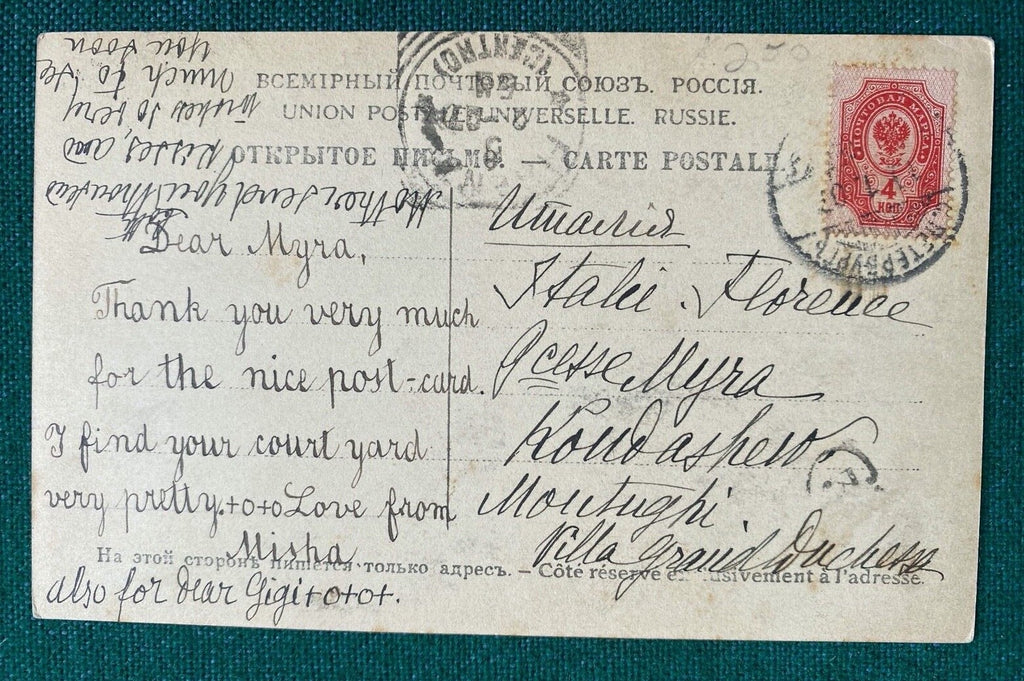 ВСЕМІРНЫЙ ПОЧТОВЫЙ СОЮЗЪ. РОССІЯ.
UNION POSTALE UNIVERSELLE. RUSSIE.
ОТКРЫТОЕ ПИСЬМО. — CARTE POSTALE
ПОЧТОВАЯ МАРКА
4
КОП
С.ПЕТЕРБУРГЪ
(CENTRO)
Dear Myra,
Thank you very much
for the nice post-card.
I find your court yard
very pretty.+o+o Love from
Misha
also for Dear Gigi+o+o+.
Mother send you thousands
kisses, and
wishes so very
much to see
you soon
Италія
Italie. Florence
Pcesse Myra
Koudashew.
Montughi.
Villa Grand Duchess
На этой сторонѣ пишется только адресъ. — Côté réservé exclusivement à l'adresse.